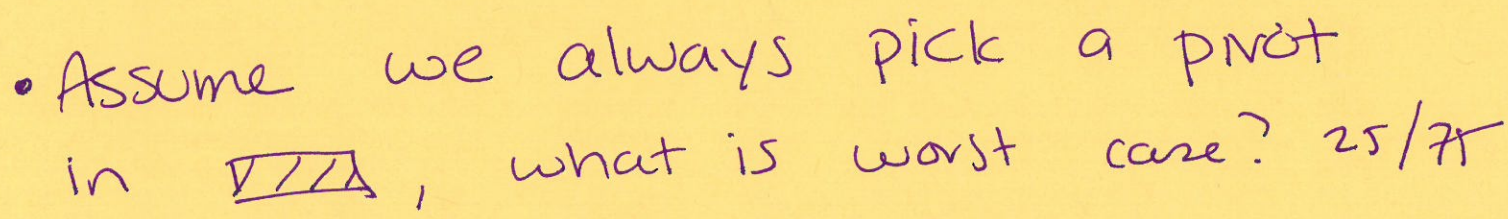 • Assume we always pick a pivot
in , what is worst case? 25/75